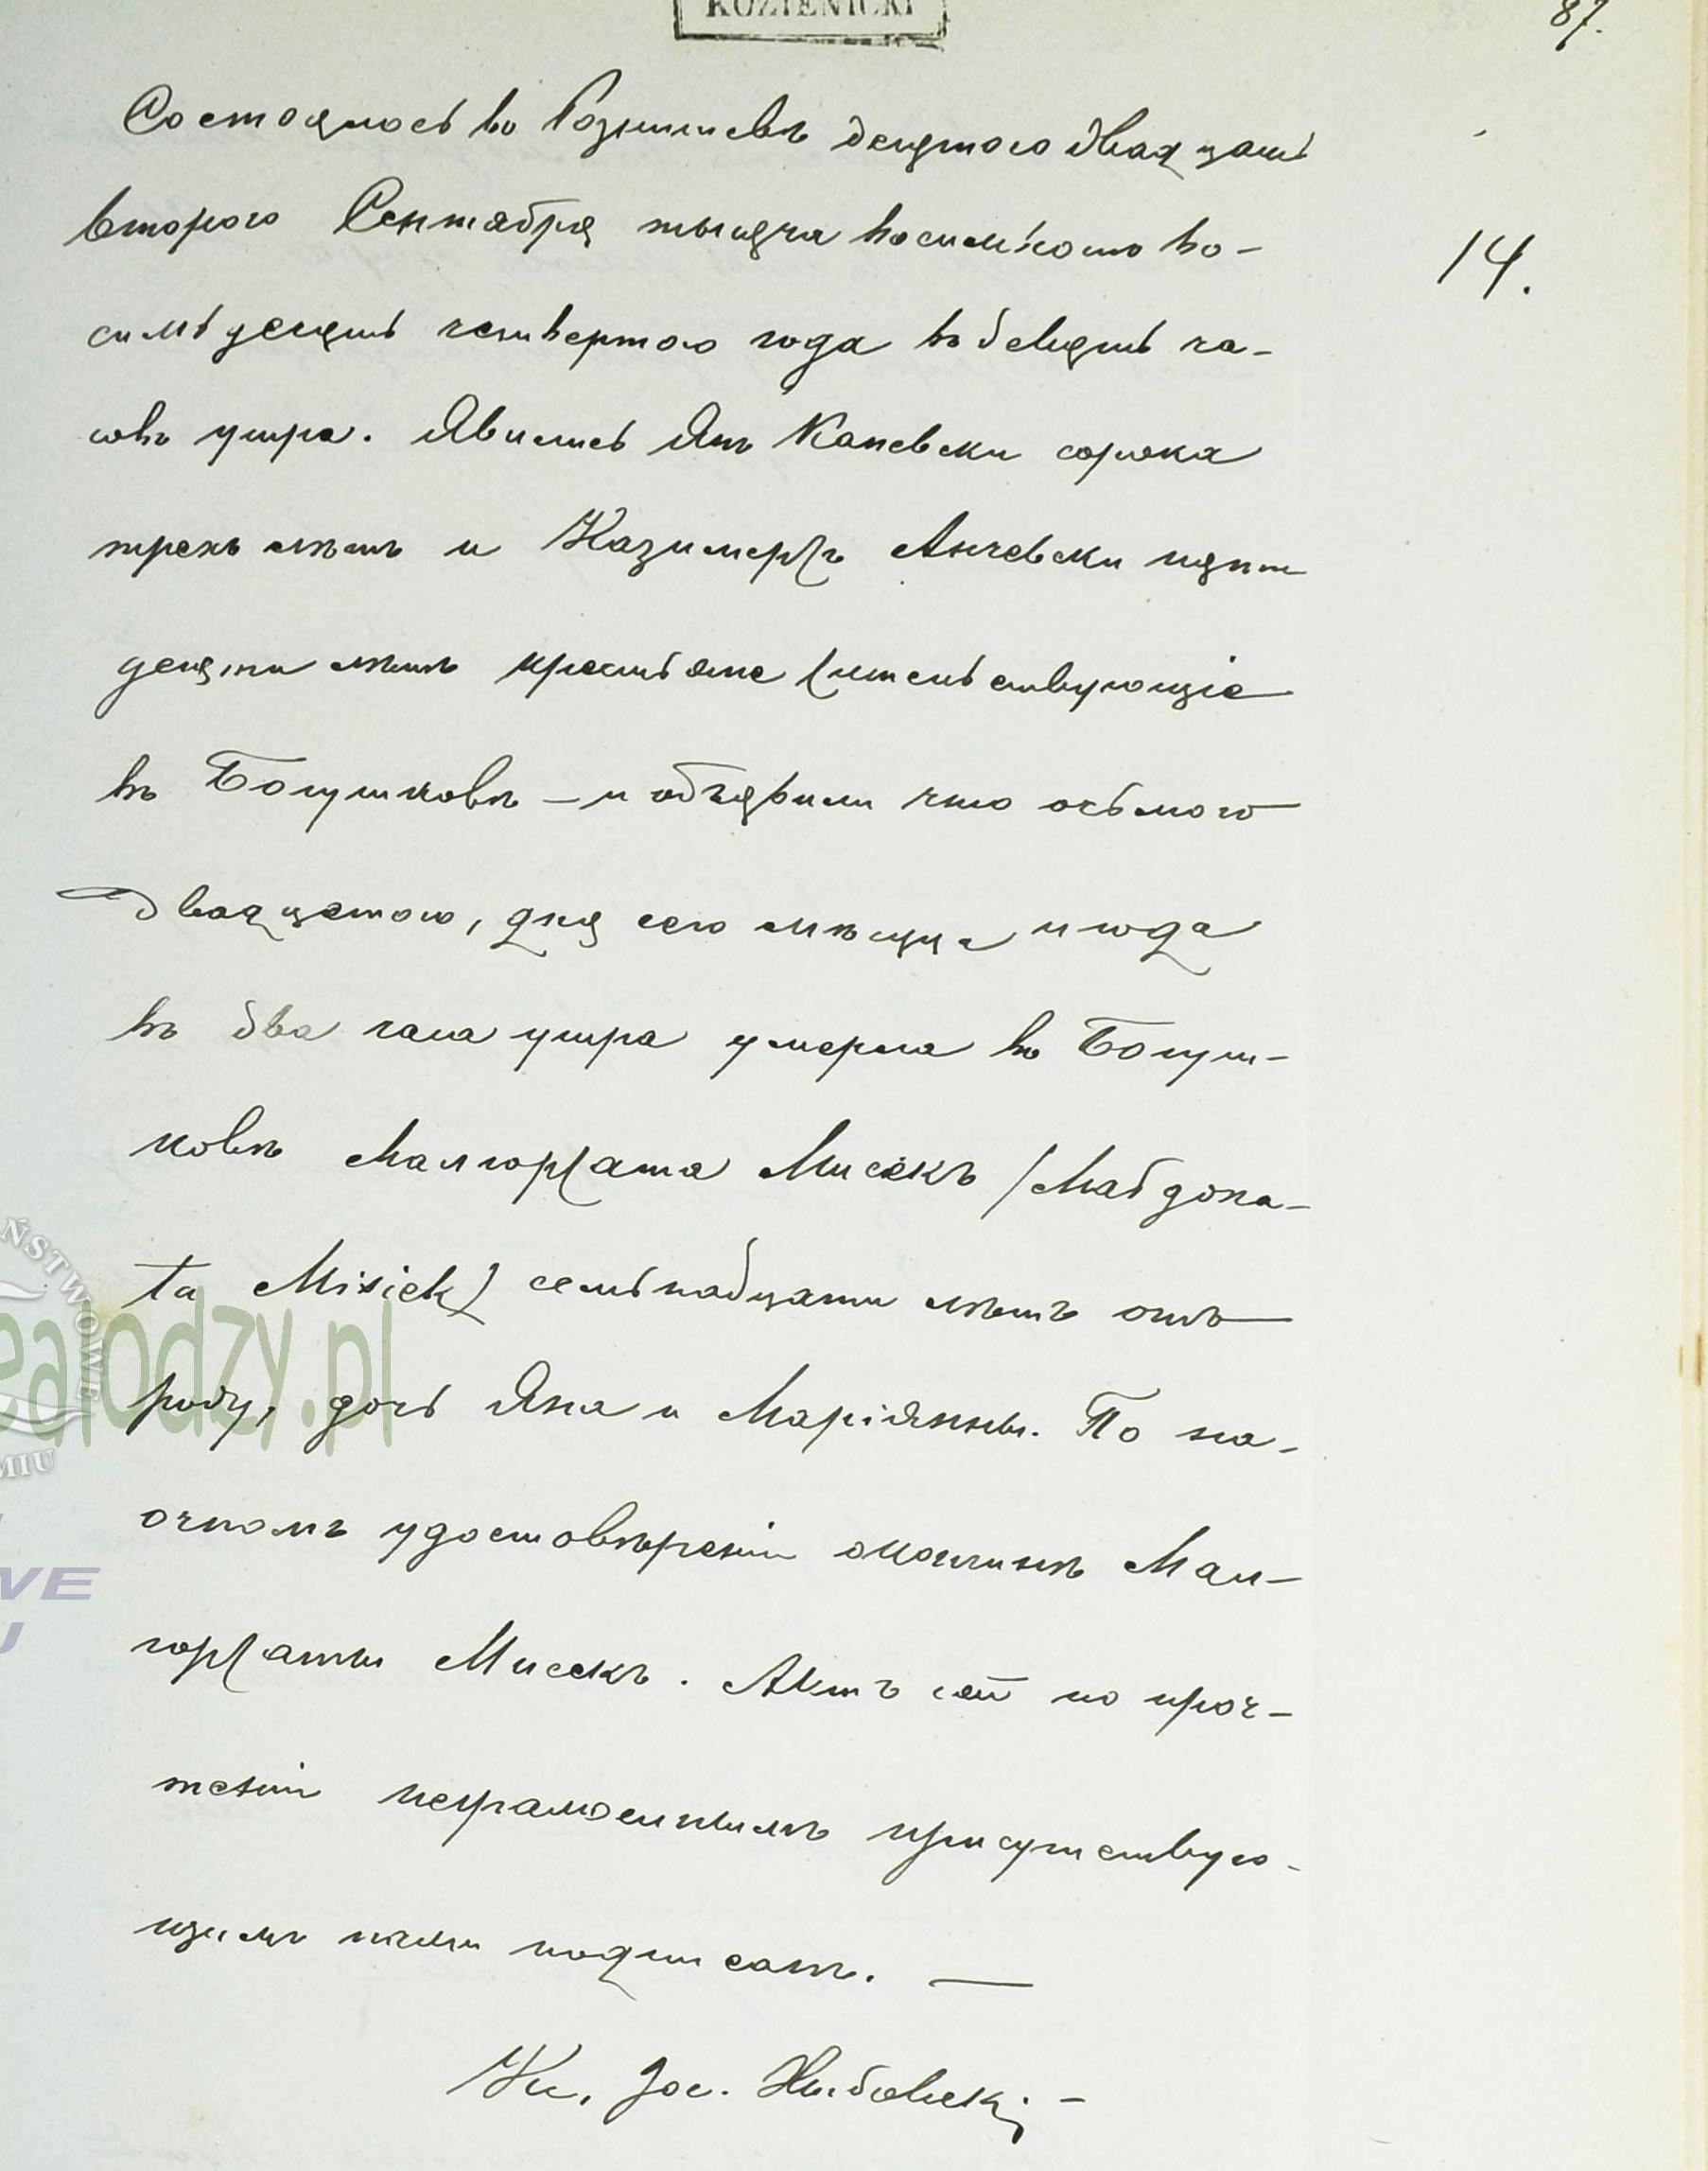 KOZIENICKI
87.
Состоялось во Розишевѣ десятого двадцать
14.
второго Сентября тысяча восимьсотъ во-
симьдесять четвертого года въ девять ча-
совъ утра. Явились Янъ Каневски сорока
трехъ лѣтъ и Казимержъ Анчевски пять
десяти лѣтъ крестьяне жительствующіе
въ Богушковѣ — и объявили что осьмого
двадцетого, дня сего мѣсяца и года
въ два часа утра умерла въ Богуш-
ковѣ Малгоржата Мисекъ /Małgorza-
ta Misiek/ семьнадцати лѣтъ отъ
роду, дочь Яна и Маріянны. По на-
очномъ удостовѣреніи о кончинѣ Мал-
горжаты Мисекъ. Актъ сей по проч-
теніи неграмотнымъ присутствую-
щимъ нами подписанъ. —
Кс. Јос.
ŃSTWOWE
ealodzy.pl
MIU
VE